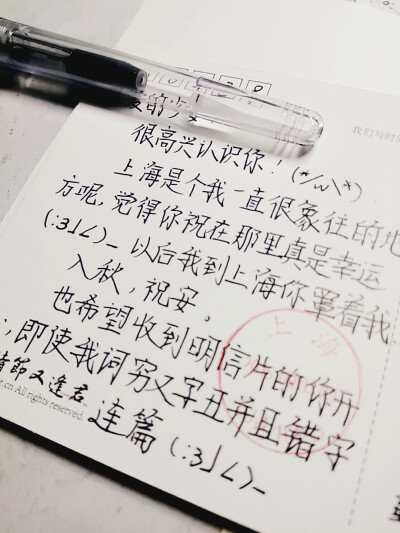 我们与时
很高兴认识你！(*/ω\*)
上海是个我一直很象往的地
方呢，觉得你祝在那里真是幸运
(:3」∠)_ 以后我到上海你罩着我
入秋，祝安。
也希望收到明信片的你开
，即使我词穷又字丑并且错字
连篇 (:3」∠)_
情節又逢君
.cn All rights reserved.
上海